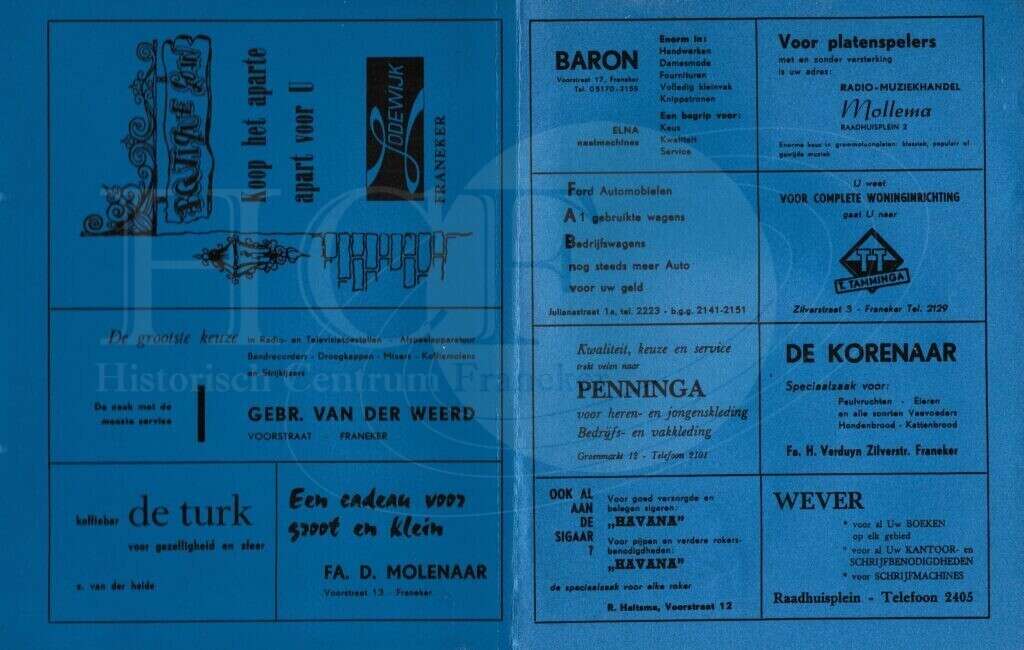 BOUTIQUE
Koop het aparte
apart voor U
LODEWIJK
FRANEKER
De grootste keuze in Radio- en Televisietoestellen - Afspeelapparatuur
Bandrecorders - Droogkappen - Mixers - Koffiemolens
en Strijkijzers
De zaak met de
meeste service
GEBR. VAN DER WEERD
VOORSTRAAT - FRANEKER
koffiebar de turk
voor gezelligheid en sfeer
s. van der heide
Een cadeau voor
groot en klein
FA. D. MOLENAAR
Voorstraat 13 - Franeker
BARON
Voorstraat 17, Franeker
Tel. 05170-2156
ELNA
naaimachines
Enorm in:
Handwerken
Damesmode
Fournituren
Volledig kleinvak
Knippatronen
Een begrip voor:
Keus
Kwaliteit
Service
Voor platenspelers
met en zonder versterking
is uw adres:
RADIO-MUZIEKHANDEL
Mollema
RAADHUISPLEIN 2
Enorme keus in grammofoonplaten: klassiek, populair of
gewijde muziek
Ford Automobielen
A 1 gebruikte wagens
Bedrijfswagens
nog steeds meer Auto
voor uw geld
Julianastraat 1a, tel. 2223 - b.g.g. 2141-2151
U weet
VOOR COMPLETE WONINGINRICHTING
gaat U naar
TT
T. TAMMINGA
Zilverstraat 3 - Franeker Tel. 2129
Kwaliteit, keuze en service
trekt velen naar
PENNINGA
voor heren- en jongenskleding
Bedrijfs- en vakkleding
Groenmarkt 12 - Telefoon 2101
DE KORENAAR
Speciaalzaak voor:
Peulvruchten - Eieren
en alle soorten Veevoeders
Hondenbrood - Kattenbrood
Fa. H. Verduyn Zilverstr. Franeker
OOK AL
AAN
DE
SIGAAR
?
Voor goed verzorgde en
belegen sigaren:
„HAVANA”
Voor pijpen en verdere rokers-
benodigdheden:
„HAVANA”
de speciaalzaak voor elke roker
R. Haitsma, Voorstraat 12
WEVER
* voor al Uw BOEKEN
op elk gebied
* voor al Uw KANTOOR- en
SCHRIJFBENODIGDHEDEN
* voor SCHRIJFMACHINES
Raadhuisplein - Telefoon 2405
HCF
Historisch Centrum Franeker